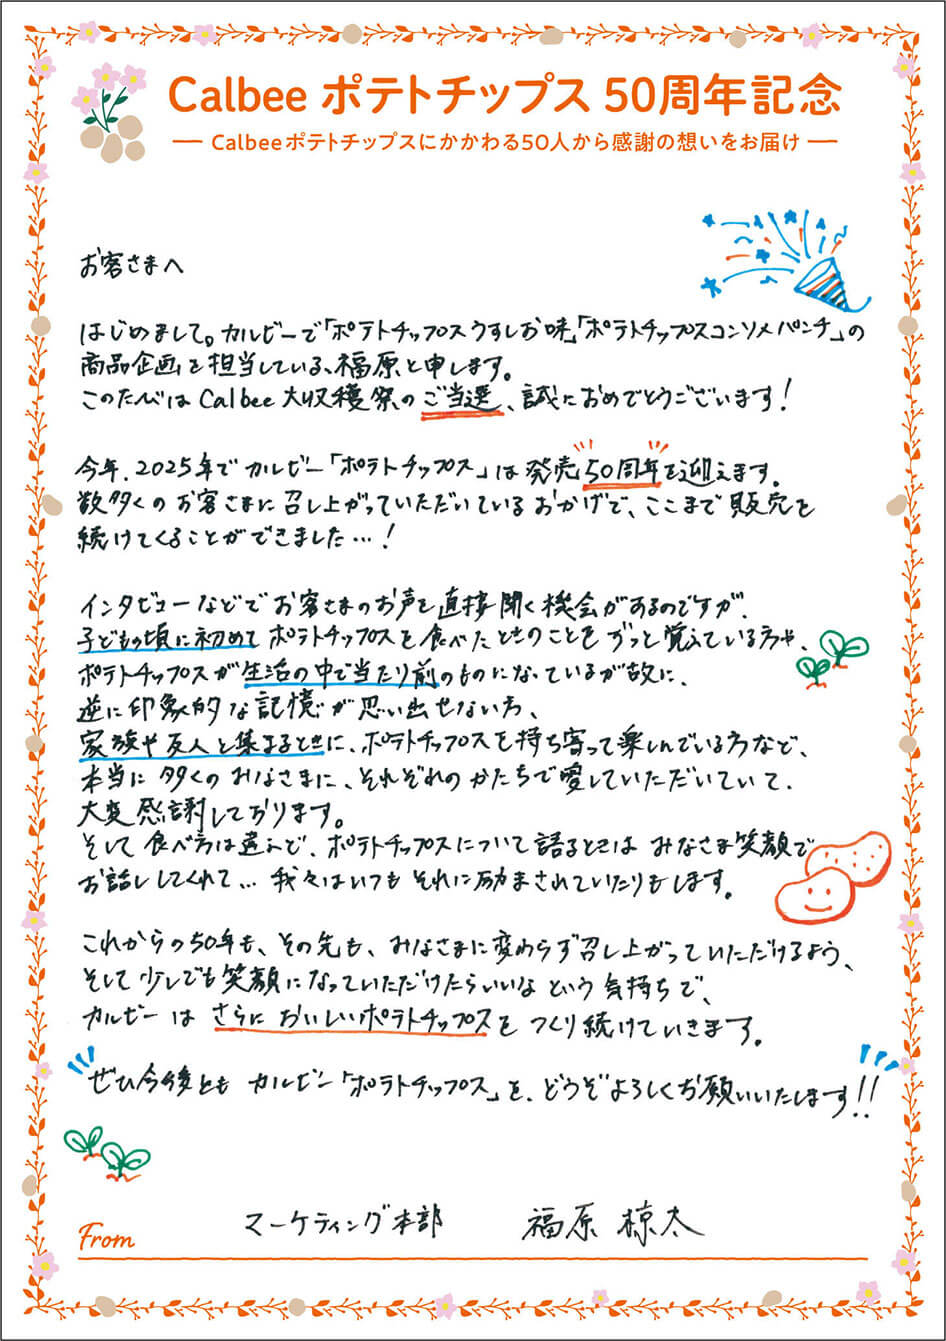 Calbee ポテトチップス 50周年記念
Calbeeポテトチップスにかかわる50人から感謝の想いをお届け
お客さまへ
はじめまして。カルビーで「ポテトチップスうすしお味」「ポテトチップスコンソメパンチ」の
商品企画を担当している、福原と申します。
このたびは Calbee 大収穫祭のご当選、誠におめでとうございます!
今年、2025年でカルビー「ポテトチップス」は発売50周年を迎えます。
数多くのお客さまに召し上がっていただいているおかげで、ここまで販売を
続けてくることができました…!
インタビューなどでお客さまのお声を直接聞く機会があるのですが、
子どもの頃に初めてポテトチップスを食べたときのことをずっと覚えている方や、
ポテトチップスが生活の中で当たり前のものになっているが故に、
逆に印象的な記憶が思い出せない方、
家族や友人と集まるときに、ポテトチップスを持ち寄って楽しんでいる方など、
本当に多くのみなさまに、それぞれのかたちで愛していただいていて、
大変感謝しております。
そして食べ方は違えど、ポテトチップスについて語るときはみなさま笑顔で
お話ししてくれて… 我々はいつもそれに励まされていたりもします。
これからの50年も、その先も、みなさまに変わらず召し上がっていただけるよう、
そして少しでも笑顔になっていただけたらいいなという気持ちで、
カルビーはさらにおいしいポテトチップスをつくり続けていきます。
ぜひ今後ともカルビー「ポテトチップス」を、どうぞよろしくお願いいたします!!
From マーケティング本部 福原 椋太